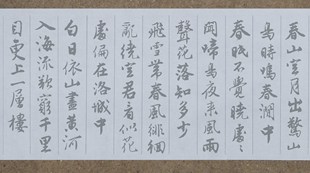 春山空月出驚山
鳥時鳴春澗中
春眠不覺曉處々
聞啼鳥夜來風雨
聲花落知多少
飛雪帶春風徘徊
亂繞空君看似花
處偏在洛城中
白日依山盡黃河
入海流欲窮千里
目更上一層樓